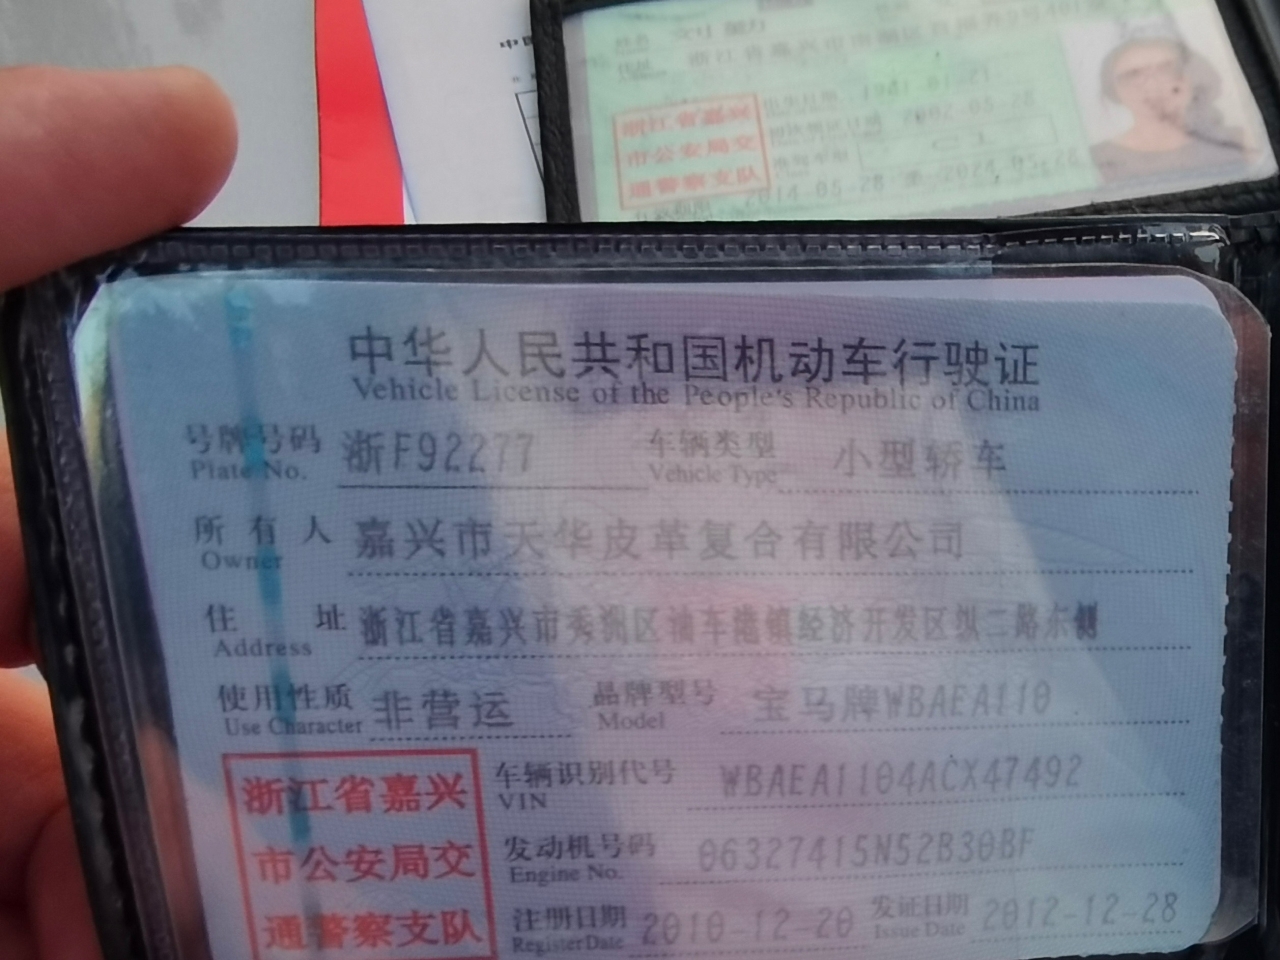 中
姓名 刘
住址 浙江省嘉兴市南湖区
出生日期 1981-01-21
2002-05-28
浙江省嘉兴
市公安局交
通警察支队
C1
2014-05-28 至 2024-05-28
中华人民共和国机动车行驶证
Vehicle License of the People's Republic of China
号牌号码 浙F92277 车辆类型 小型轿车
Plate No. Vehicle Type
所有人 嘉兴市天华皮革复合有限公司
Owner
住址 浙江省嘉兴市秀洲区油车港镇经济开发区纵二路东侧
Address
使用性质 非营运 品牌型号 宝马牌WBAEA110
Use Character Model
浙江省嘉兴
市公安局交
通警察支队
车辆识别代号 WBAEA1104ACX47492
VIN
发动机号码 06327415N52B30BF
Engine No.
注册日期 2010-12-20 发证日期 2012-12-28
Register Date Issue Date